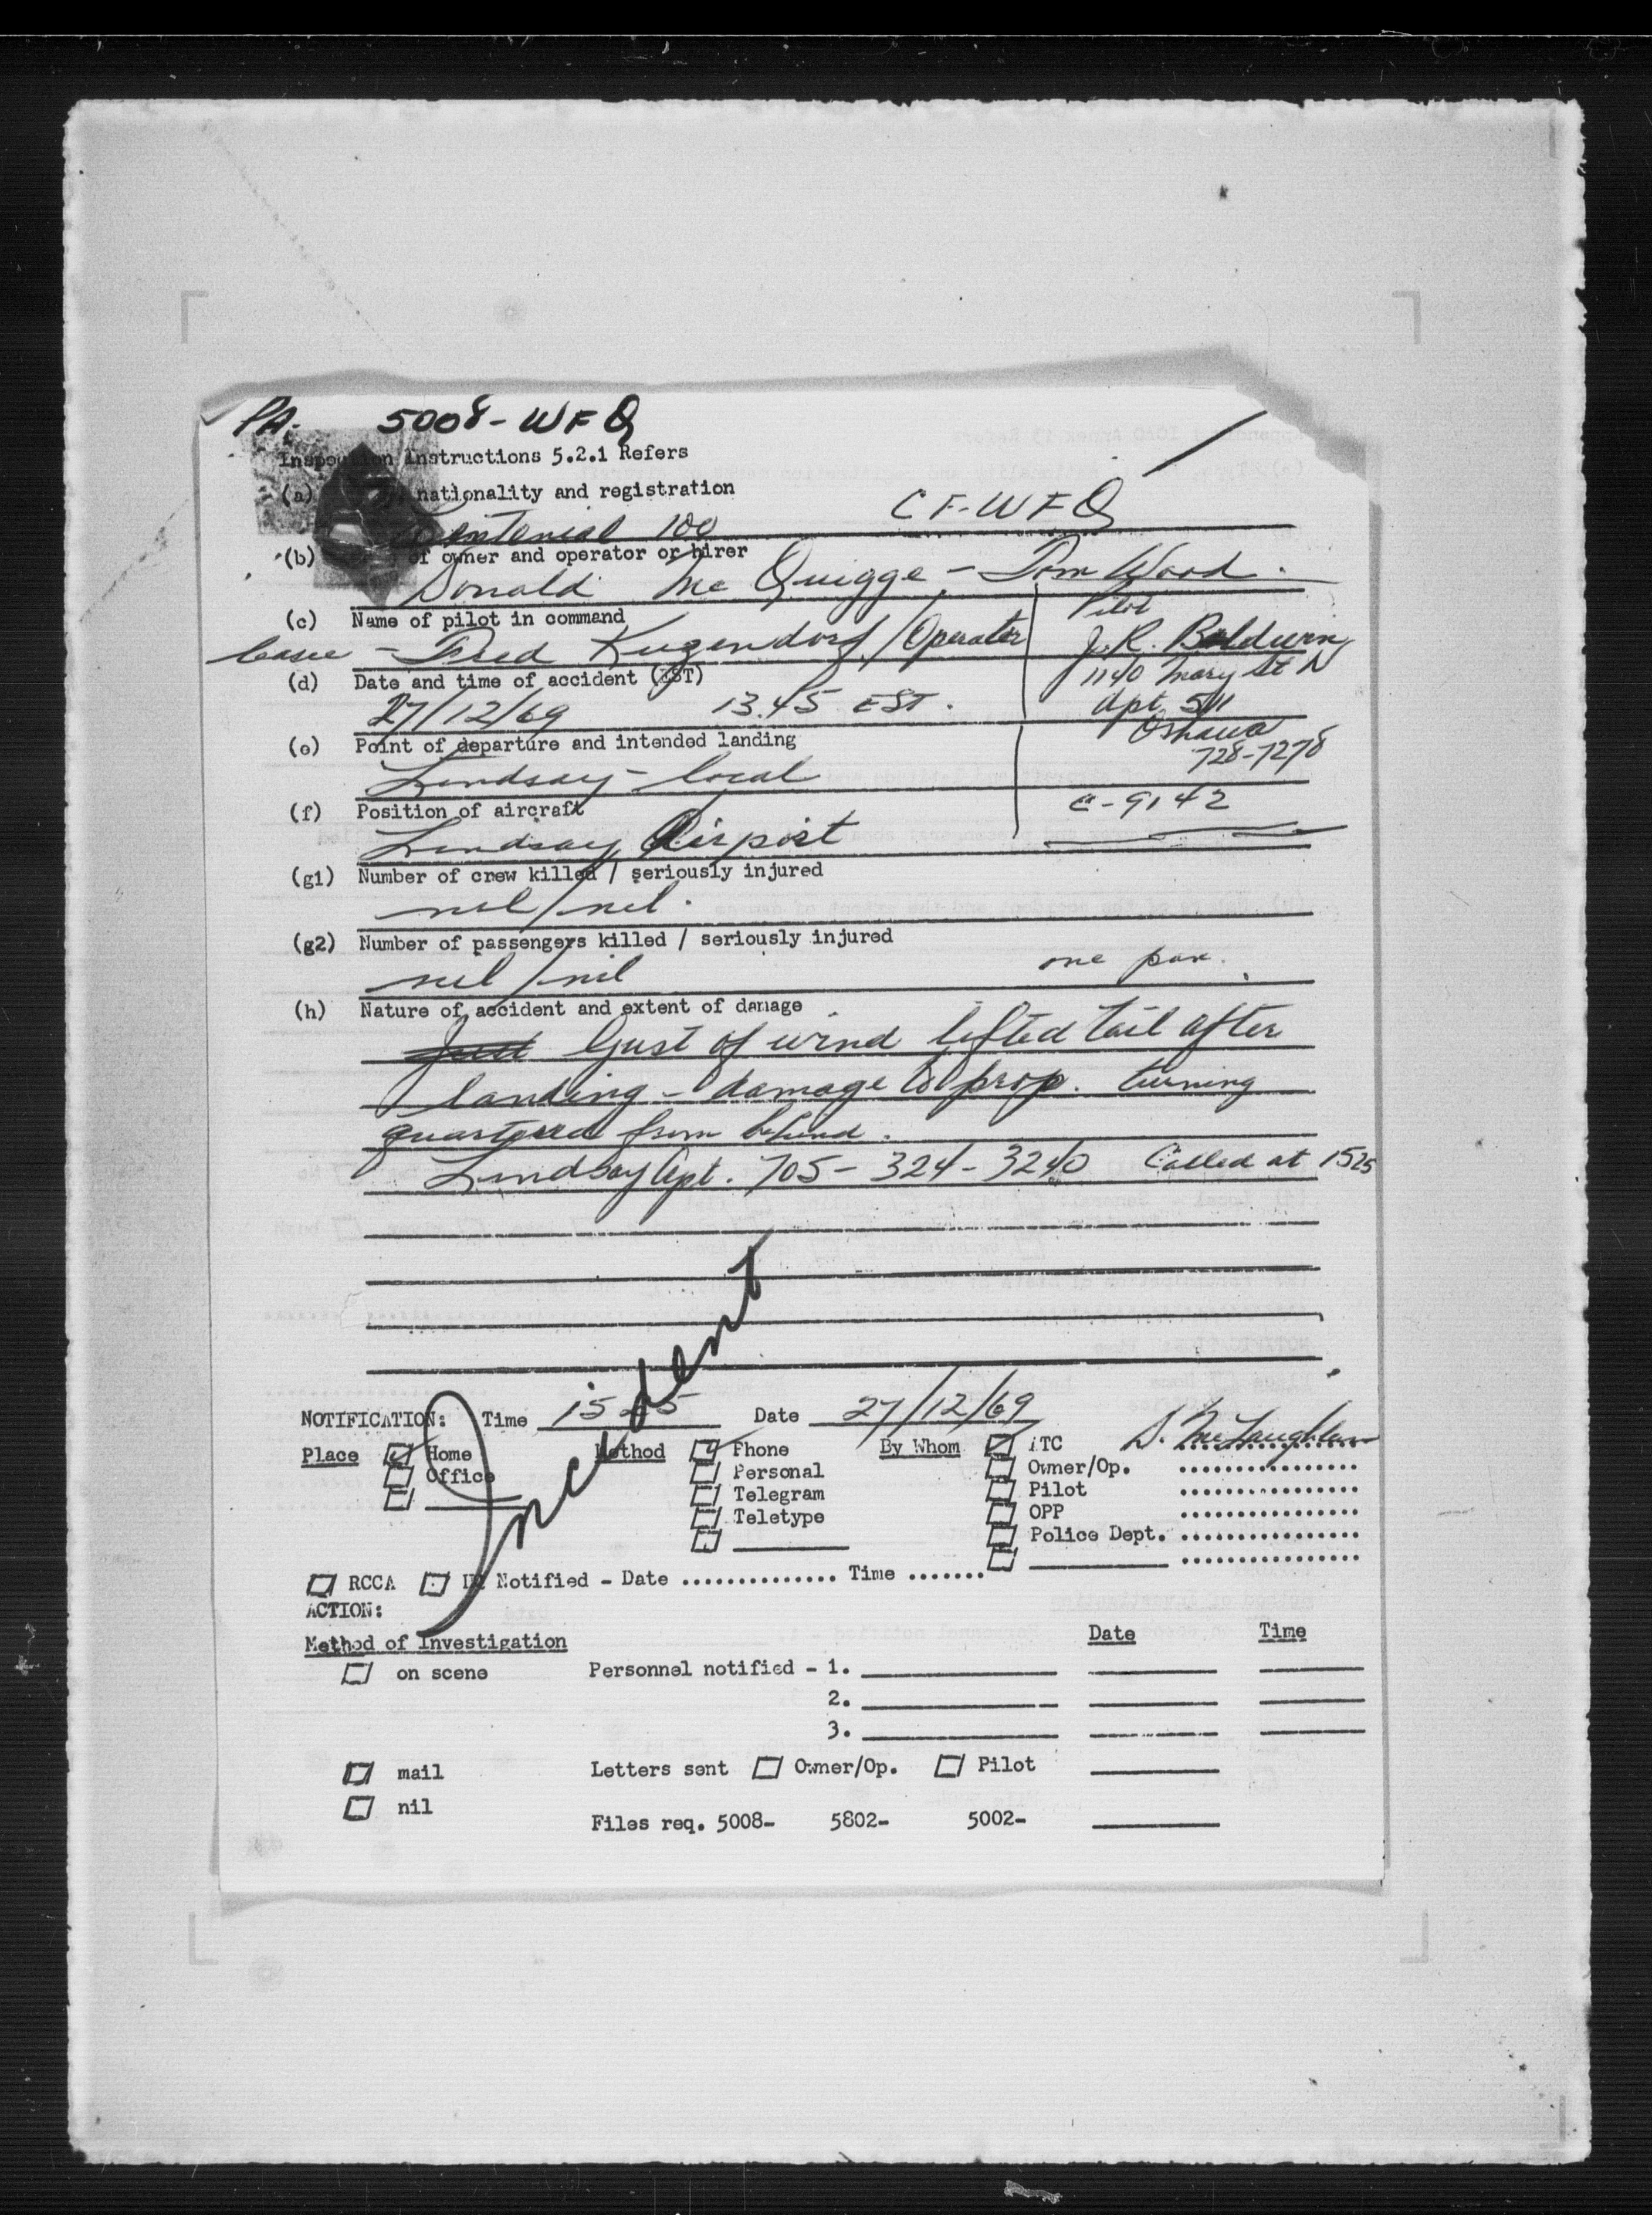 PA. 5008-WFQ
Inspection Instructions 5.2.1 Refers
(a) nationality and registration
Centenial 100 CF-WFQ
(b) of owner and operator or hirer
Donald Mc Quigge - Tom Wood.
(c) Name of pilot in command
Pilot
- Fred Kugendorf / Operator J.R. Baldwin
(d) Date and time of accident (EST) 1140 Mary St N
27/12/69 13.45 EST. Apt. 511
(e) Point of departure and intended landing Oshawa
728-7278
Lindsay - local
(f) Position of aircraft 9142
Lindsay Airport
(g1) Number of crew killed / seriously injured
nil / nil.
(g2) Number of passengers killed / seriously injured
nil / nil one pax.
(h) Nature of accident and extent of damage
Gust of wind lifted tail after
landing - damage to prop. turning
quartered from behind.
Lindsay Apt. 705-324-3240 Called at 1525
Incident
NOTIFICATION: Time 1525 Date 27/12/69
Place Home Method Phone By Whom ATC D. McLaughlin
Office Personal Owner/Op. ................
Telegram Pilot ................
Teletype OPP ................
Police Dept. ................
................
RCCA Notified - Date .............. Time .......
ACTION:
Method of Investigation Date Time
on scene Personnel notified - 1.
2.
3.
mail Letters sent Owner/Op. Pilot
nil
Files req. 5008- 5802- 5002-